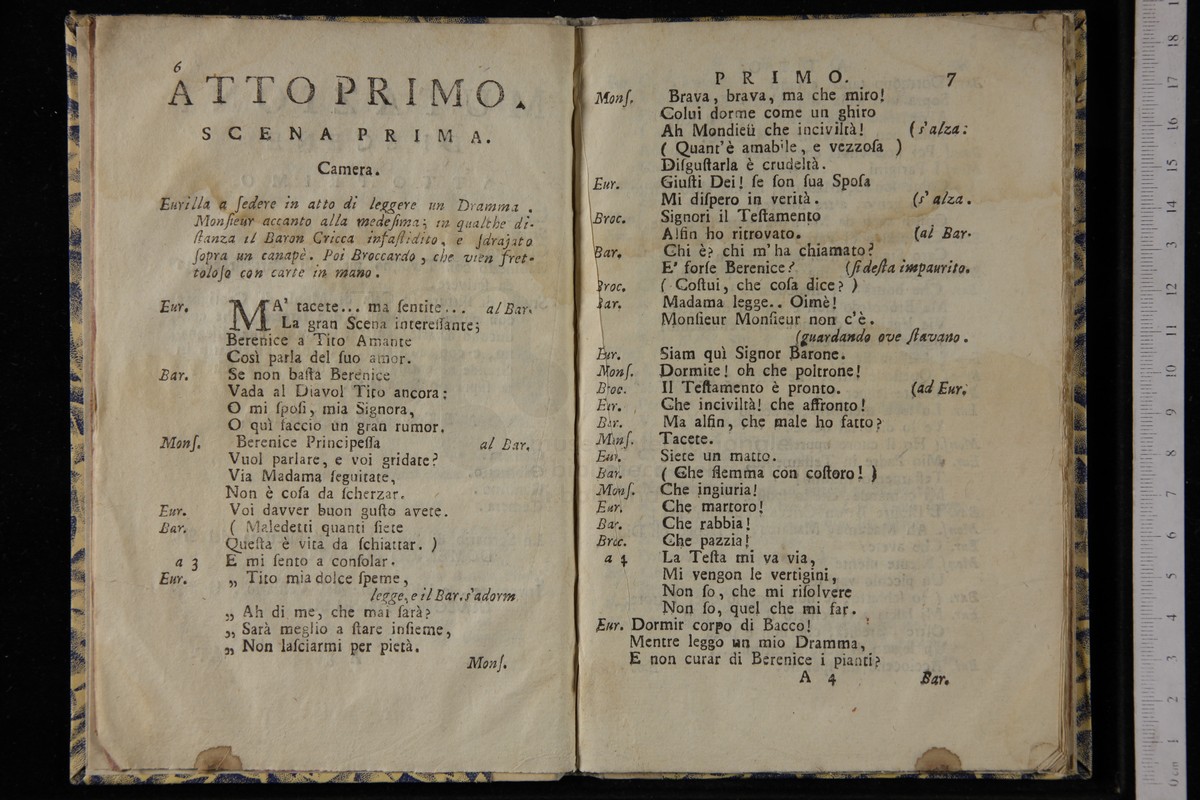 6
ATTO PRIMO.
SCENA PRIMA.
Camera.
Eurilla a ſedere in atto di leggere un Dramma.
Monſieur accanto alla medeſima; in qualche di-
ſtanza il Baron Cricca infaſtidito, e ſdrajato
ſopra un canapè. Poi Broccardo, che vien fret-
toloſo con carte in mano.
Eur. MA' tacete... ma ſentite... al Bar.
La gran Scena intereſſante;
Berenice a Tito Amante
Così parla del ſuo amor.
Bar. Se non baſta Berenice
Vada al Diavol Tito ancora:
O mi ſpoſi, mia Signora,
O quì faccio un gran rumor.
Monſ. Berenice Principeſſa al Bar.
Vuol parlare, e voi gridate?
Via Madama ſeguitate,
Non è coſa da ſcherzar.
Eur. Voi davver buon guſto avete.
Bar. ( Maledetti quanti ſiete
Queſta è vita da ſchiattar. )
a 3 E mi ſento a conſolar.
Eur. „ Tito mia dolce ſpeme,
legge, e il Bar. s'adorm.
„ Ah di me, che mai ſarà?
„ Sarà meglio a ſtare inſieme,
„ Non laſciarmi per pietà.
Monſ.
PRIMO. 7
Monſ. Brava, brava, ma che miro!
Colui dorme come un ghiro
Ah Mondieù che inciviltà! (s'alza:
( Quant'è amabile, e vezzoſa )
Diſguſtarla è crudeltà.
Eur. Giuſti Dei! ſe ſon ſua Spoſa
Mi diſpero in verità. (s'alza.
Broc. Signori il Teſtamento
Alfin ho ritrovato. (al Bar.
Bar. Chi è? chi m'ha chiamato?
E' forſe Berenice? (ſi deſta impaurito.
Broc. ( Coſtui, che coſa dice? )
Bar. Madama legge.. Oimè!
Monſieur Monſieur non c'è.
(guardando ove ſtavano.
Eur. Siam quì Signor Barone.
Monſ. Dormite! oh che poltrone!
Broc. Il Teſtamento è pronto. (ad Eur.
Eur. Che inciviltà! che affronto!
Bar. Ma alfin, che male ho fatto?
Monſ. Tacete.
Eur. Siete un matto.
Bar. ( Che flemma con coſtoro! )
Monſ. Che ingiuria!
Eur. Che martoro!
Bar. Che rabbia!
Broc. Che pazzia!
a 4 La Teſta mi va via,
Mi vengon le vertigini,
Non ſo, che mi riſolvere
Non ſo, quel che mi far.
Eur. Dormir corpo di Bacco!
Mentre leggo un mio Dramma,
E non curar di Berenice i pianti?
A 4 Bar.